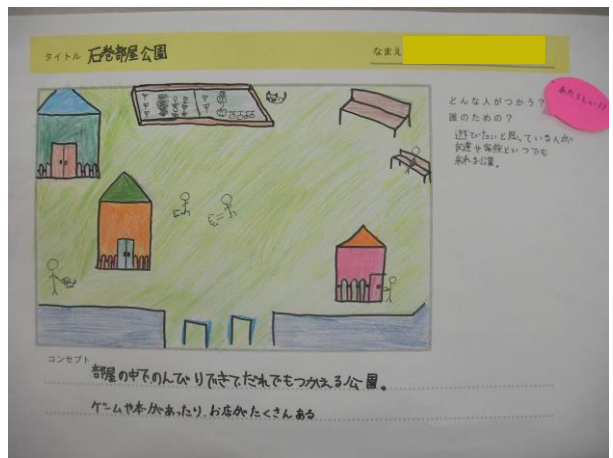 タイトル 石巻部屋公園
なまえ
どんな人がつかう?
誰のための?
遊びたいと思っている人が
友達や家族といつでも
来れる公園。
あたらしい!!
コンセプト
部屋の中でのんびりできて、だれでもつかえる公園。
ゲームや本があったり、お店がたくさんある